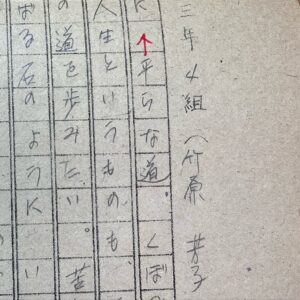 三年4組(竹原 芳子
K↑平らな道。くぼ
人生というものも、
の道を歩みたい。苦
ばる石のようKい